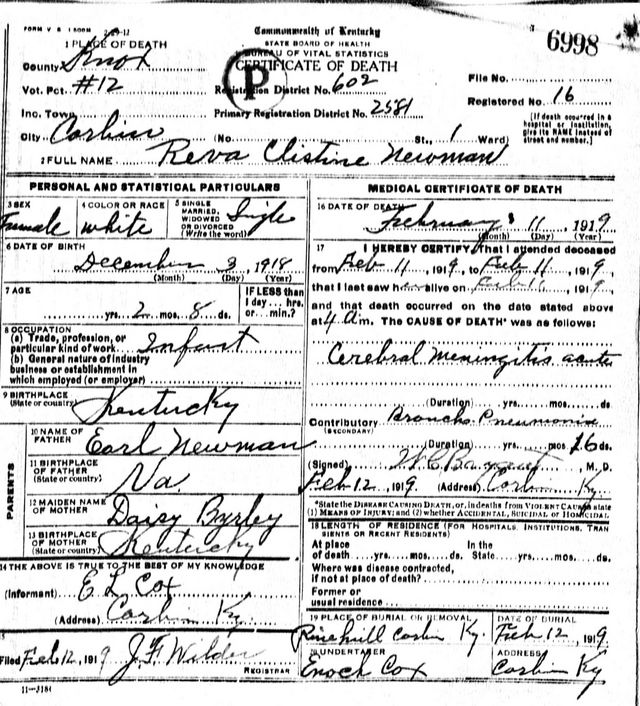 FORM V. S. 1 500M 2-19-12
Commonwealth of Kentucky
6998
1 PLACE OF DEATH
STATE BOARD OF HEALTH
BUREAU OF VITAL STATISTICS
County Knox
CERTIFICATE OF DEATH
Vot. Pct. #12
P
Registration District No. 602
File No.
Inc. Town
Primary Registration District No. 2581
Registered No. 16
City Corbin (No. St., 1 Ward)
[If death occurred in a hospital or institution, give its NAME instead of street and number.]
2 FULL NAME Reva Clistine Newman
PERSONAL AND STATISTICAL PARTICULARS
3 SEX
Female
4 COLOR OR RACE
white
5 SINGLE
MARRIED,
WIDOWED
OR DIVORCED
(Write the word)
Single
6 DATE OF BIRTH
December 3, 1918
(Month) (Day) (Year)
7 AGE
yrs. 2 mos. 8 ds.
IF LESS than
1 day... hrs.
or... min.?
8 OCCUPATION
(a) Trade, profession, or
particular kind of work Infant
(b) General nature of industry
business or establishment in
which employed (or employer)
9 BIRTHPLACE
(State or country) Kentucky
PARENTS
10 NAME OF
FATHER Earl Newman
11 BIRTHPLACE
OF FATHER
(State or country) Va.
12 MAIDEN NAME
OF MOTHER Daisy Byrley
13 BIRTHPLACE
OF MOTHER
(State or country) Kentucky
14 THE ABOVE IS TRUE TO THE BEST OF MY KNOWLEDGE
(Informant) E L Cox
(Address) Corbin Ky.
15
Filed Feb 12, 1919 J. F. Wilder
REGISTRAR
11-3184
MEDICAL CERTIFICATE OF DEATH
16 DATE OF DEATH
February 11, 1919
(Month) (Day) (Year)
17 I HEREBY CERTIFY, That I attended deceased
from Feb 11, 1919, to Feb 11, 1919,
that I last saw h alive on Feb 11, 1919,
and that death occurred on the date stated above
at 4 a.m. The CAUSE OF DEATH* was as follows:
Cerebral Meningitis acute
(Duration) yrs. mos. ds.
Contributory Broncho Pneumonia
(SECONDARY)
(Duration) yrs. mos. ds.
(Signed) M. D.
Feb 12, 1919 (Address) Corbin Ky.
*State the DISEASE CAUSING DEATH, or, in deaths from VIOLENT CAUSES state
(1) MEANS OF INJURY; and (2) whether ACCIDENTAL, SUICIDAL or HOMICIDAL.
18 LENGTH OF RESIDENCE (FOR HOSPITALS, INSTITUTIONS, TRAN
SIENTS OR RECENT RESIDENTS)
At place In the
of death yrs. mos. ds. State yrs. mos. ds.
Where was disease contracted,
if not at place of death?
Former or
usual residence
19 PLACE OF BURIAL OR REMOVAL
Pine hill Corbin Ky.
DATE OF BURIAL
Feb 12, 1919
20 UNDERTAKER
Enoch Cox
ADDRESS
Corbin Ky